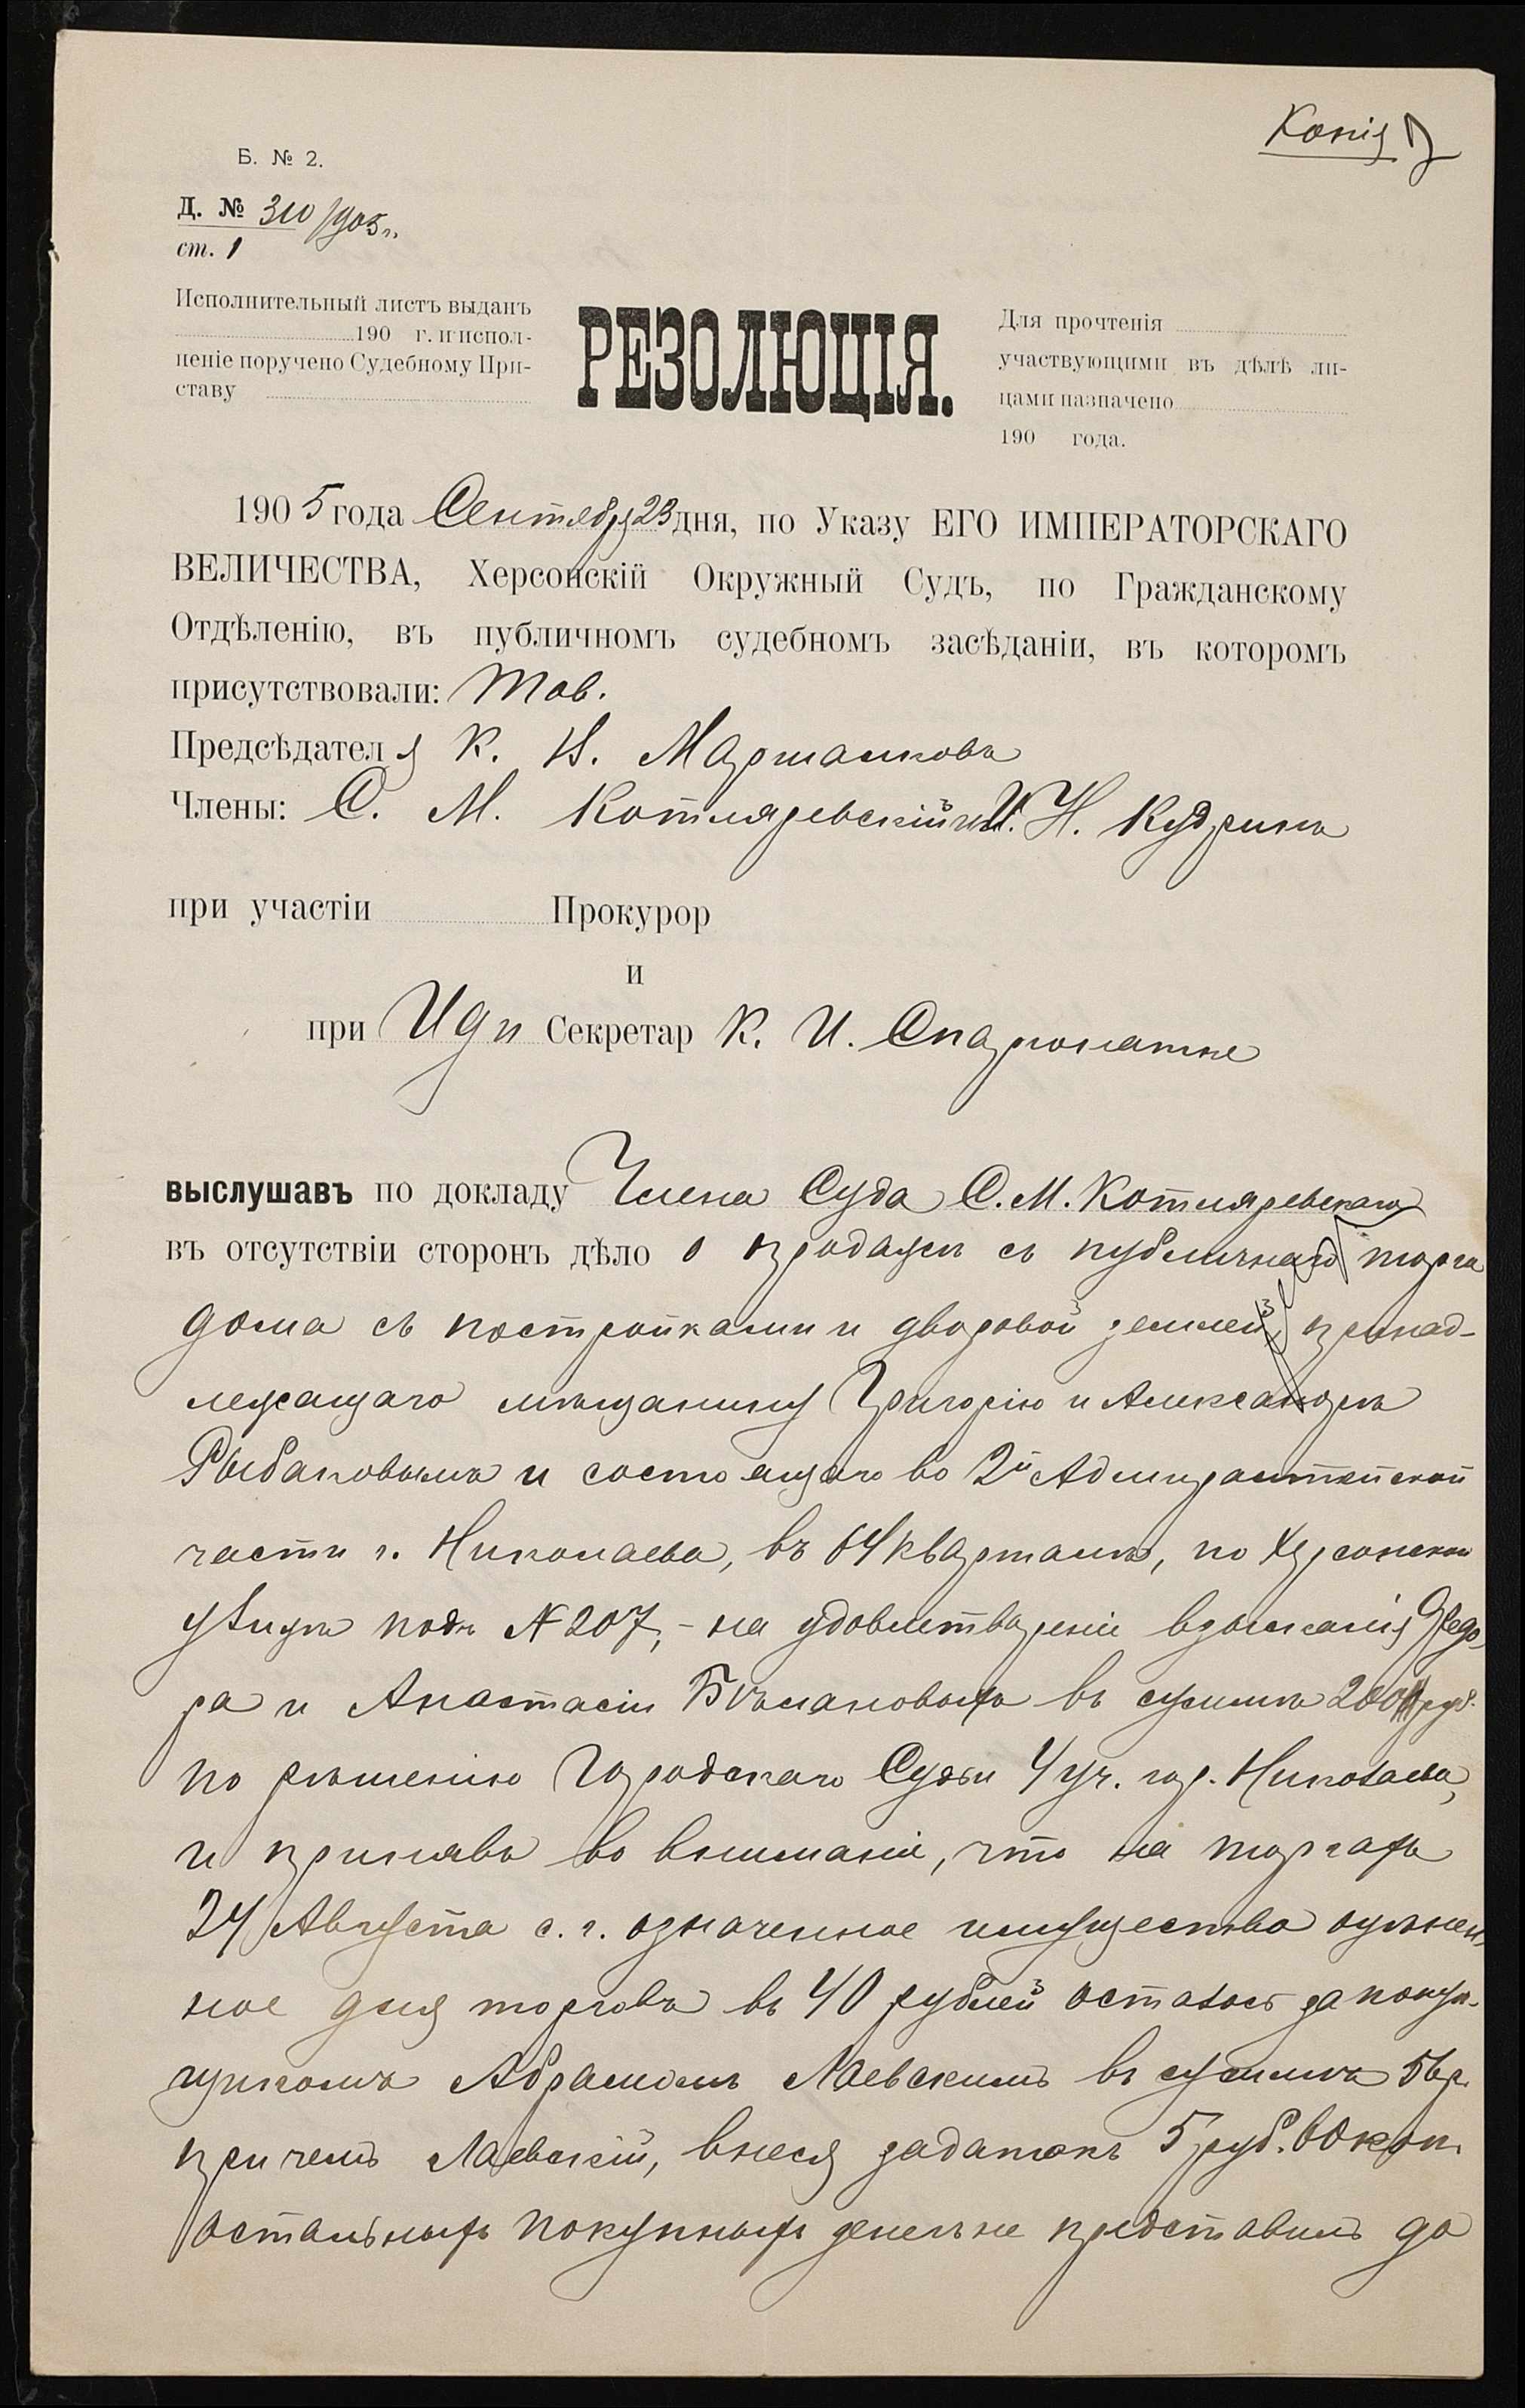 Копія
Б. № 2.
Д. № 310/905 г.
ст. 1
Исполнительный листъ выданъ
190 г. и испол-
неніе поручено Судебному При-
ставу
РЕЗОЛЮЦІЯ.
Для прочтенія
участвующими въ дѣлѣ ли-
цами назначено
190 года.
1905 года Сентября 23 дня, по Указу ЕГО ИМПЕРАТОРСКАГО
ВЕЛИЧЕСТВА, Херсонскій Окружный Судъ, по Гражданскому
Отдѣленію, въ публичномъ судебномъ засѣданіи, въ которомъ
присутствовали: Тов.
Предсѣдателя К. Н. Маршалковъ
Члены: С. М. Котляревскій и И. Н. Кудринъ
при участіи Прокурор
и
при Идп Секретар К. И.
выслушавъ по докладу Члена Суда С. М. Котляревскаго
въ отсутствіи сторонъ дѣло о продажѣ съ публичнаго торга
дома съ постройками и дворовой землей, принад-
лежащаго мѣщанину Григорію и Александрѣ
Рыбаковымъ и состоящаго во 2й Адмиралтейской
части г. Николаева, въ 64 кварталѣ, по Херсонской
улицѣ подъ № 207, - на удовлетвореніе взысканія Федо-
ра и Анастасіи въ суммѣ 200 руб.
по рѣшенію Городскаго Судьи 4 уч. гор. Николаева,
и принявъ во вниманіе, что на торгахъ
24 Августа с. г. означенное имущество оцѣнен-
ное для торговъ въ 40 рублей осталось за покуп-
щикомъ Абрамомъ Лаевскимъ въ суммѣ 56 р.
при чемъ Лаевскій, внеся задатокъ 5 руб. 60 коп.
остальныхъ покупныхъ денегъ не представилъ до